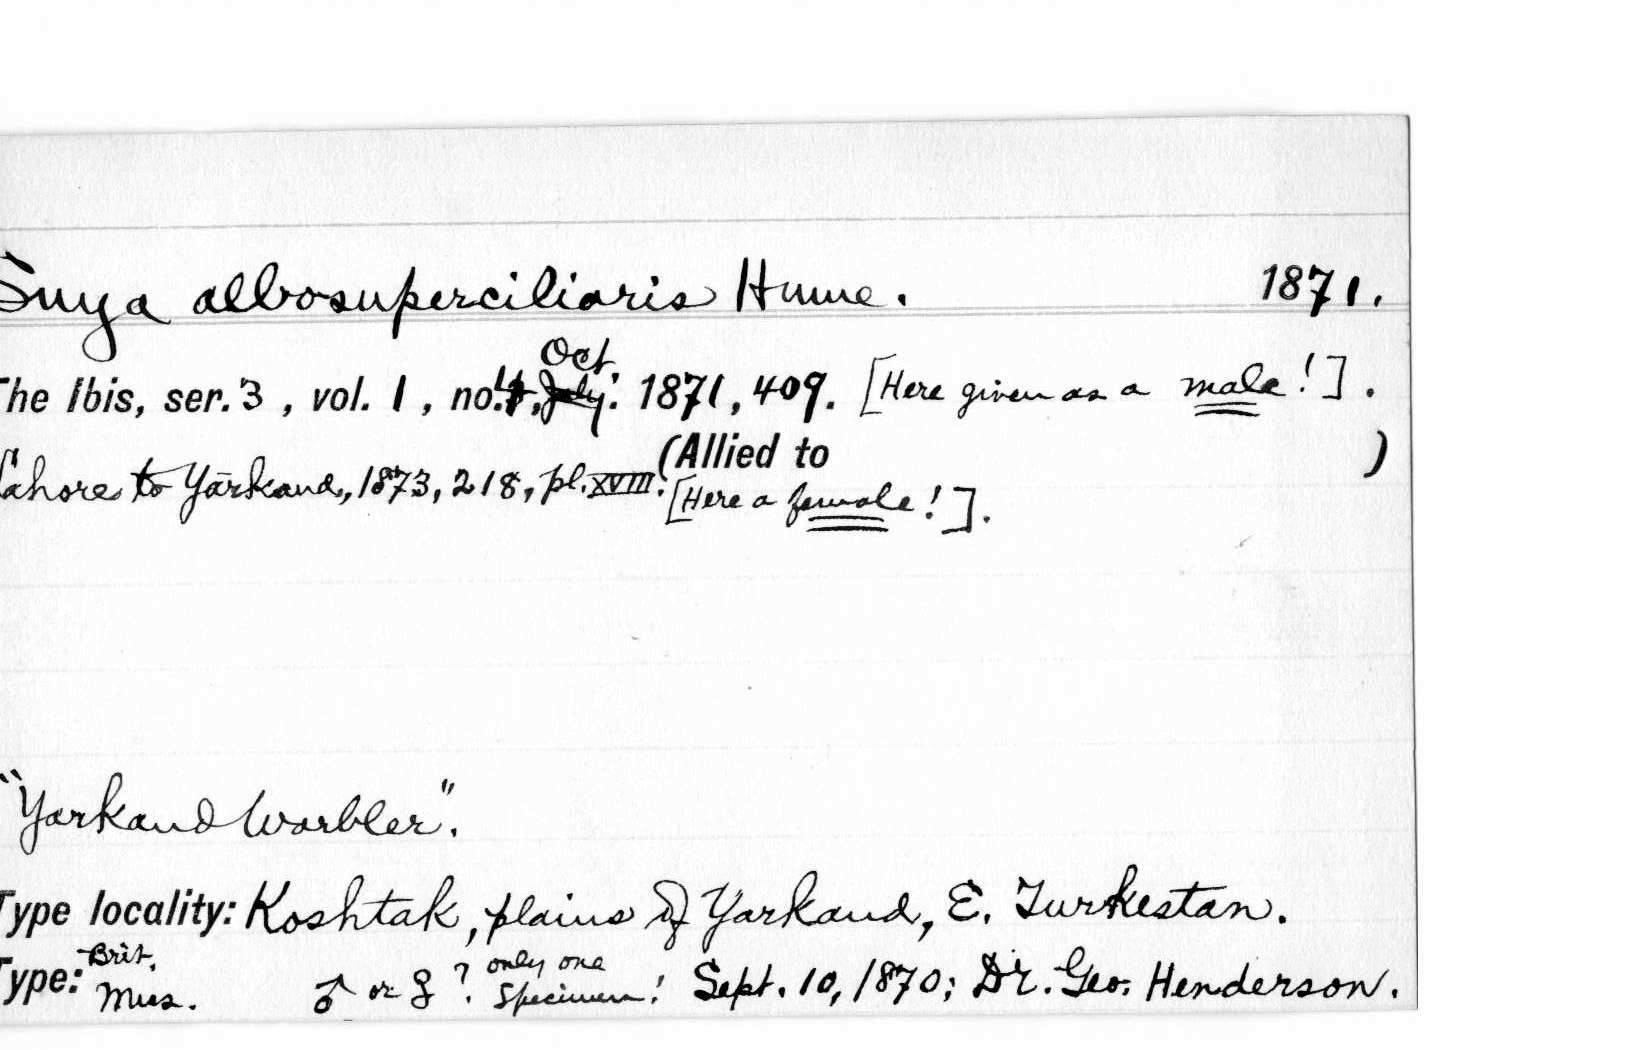 Suya albosuperciliaris Hume. 1871.
The Ibis, ser. 3, vol. 1, no. 4, Oct. 1871, 409. [Here given as a male!].
(Allied to )
Lahore to Yārkand, 1873, 218, pl. XVIII. [Here a female!].
"Yarkand Warbler".
Type locality: Koshtak, plains of Yarkand, E. Turkestan.
Type: Brit. Mus. ♂ or ♀? only one specimen! Sept. 10, 1870; Dr. Geo. Henderson.